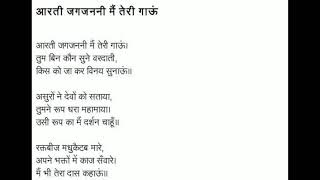 आरती जगजननी मैं तेरी गाऊं
आरती जगजननी मैं तेरी गाऊं।
तुम बिन कौन सुने वरदाती,
किस को जा कर विनय सुनाऊं॥
असुरों ने देवों को सताया,
तुमने रूप धरा महामाया।
उसी रूप का मैं दर्शन चाहूँ॥
रक्तबीज मधुकैटब मारे,
अपने भक्तों में काज सँवारे।
मैं भी तेरा दास कहाऊं॥